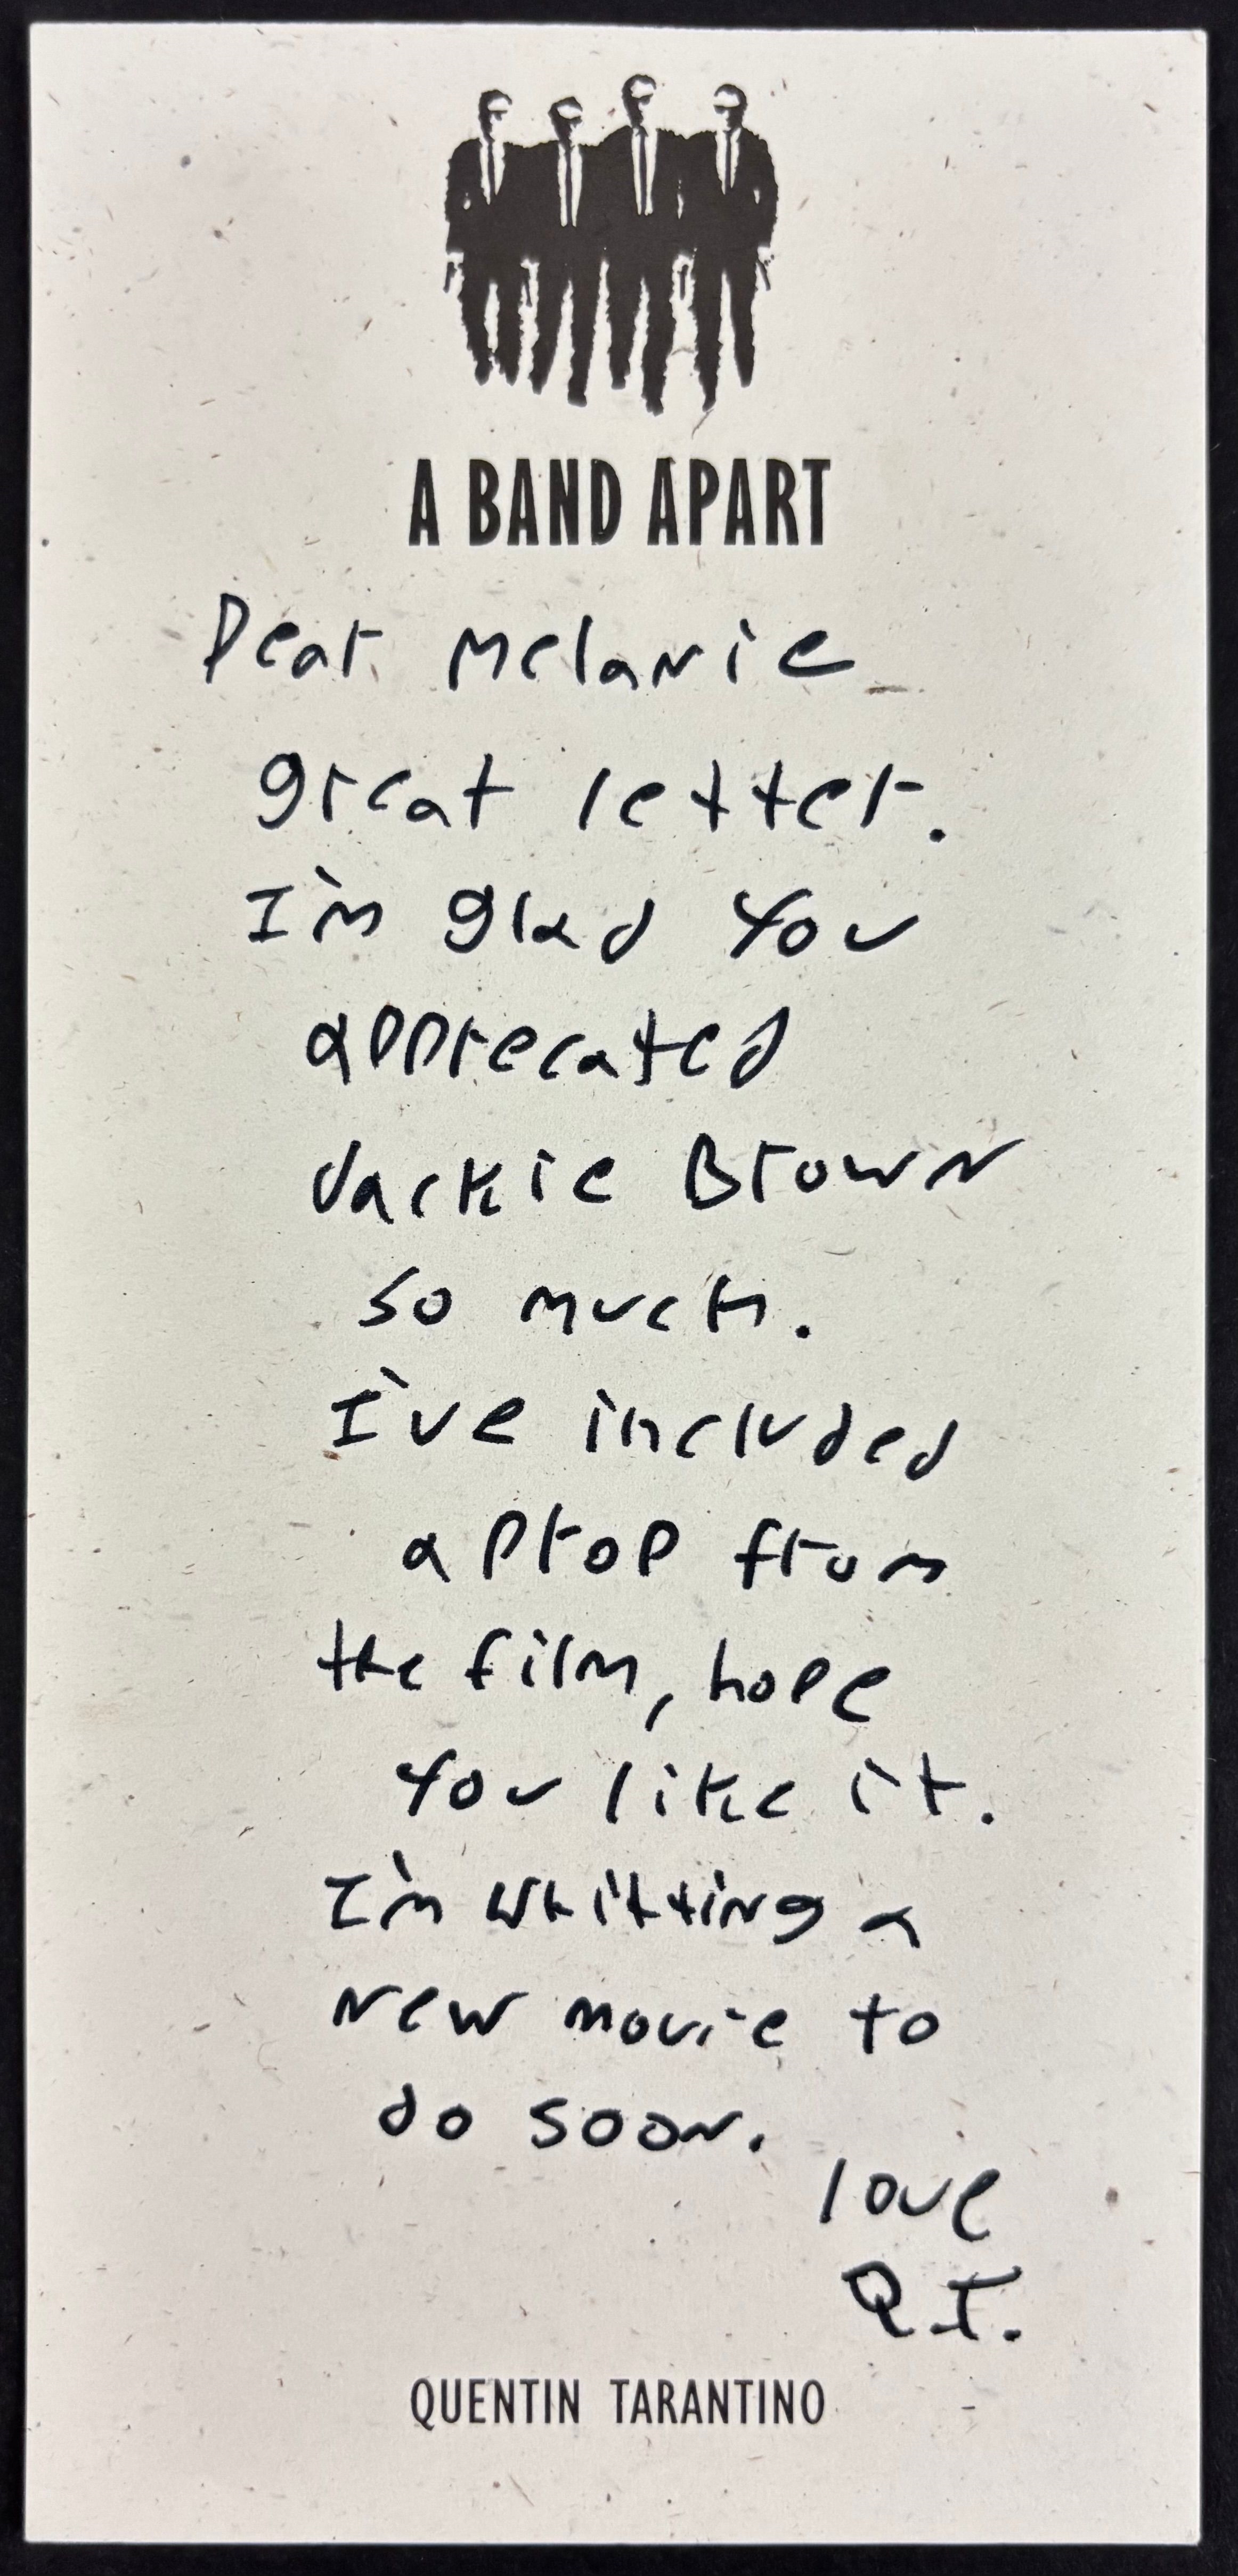 A BAND APART
Dear Melanie
great letter.
I'm glad you
apprecated
Jackie Brown
so much.
I've included
a prop from
the film, hope
you like it.
I'm writting a
new movie to
do soon.
love
Q.T.
QUENTIN TARANTINO